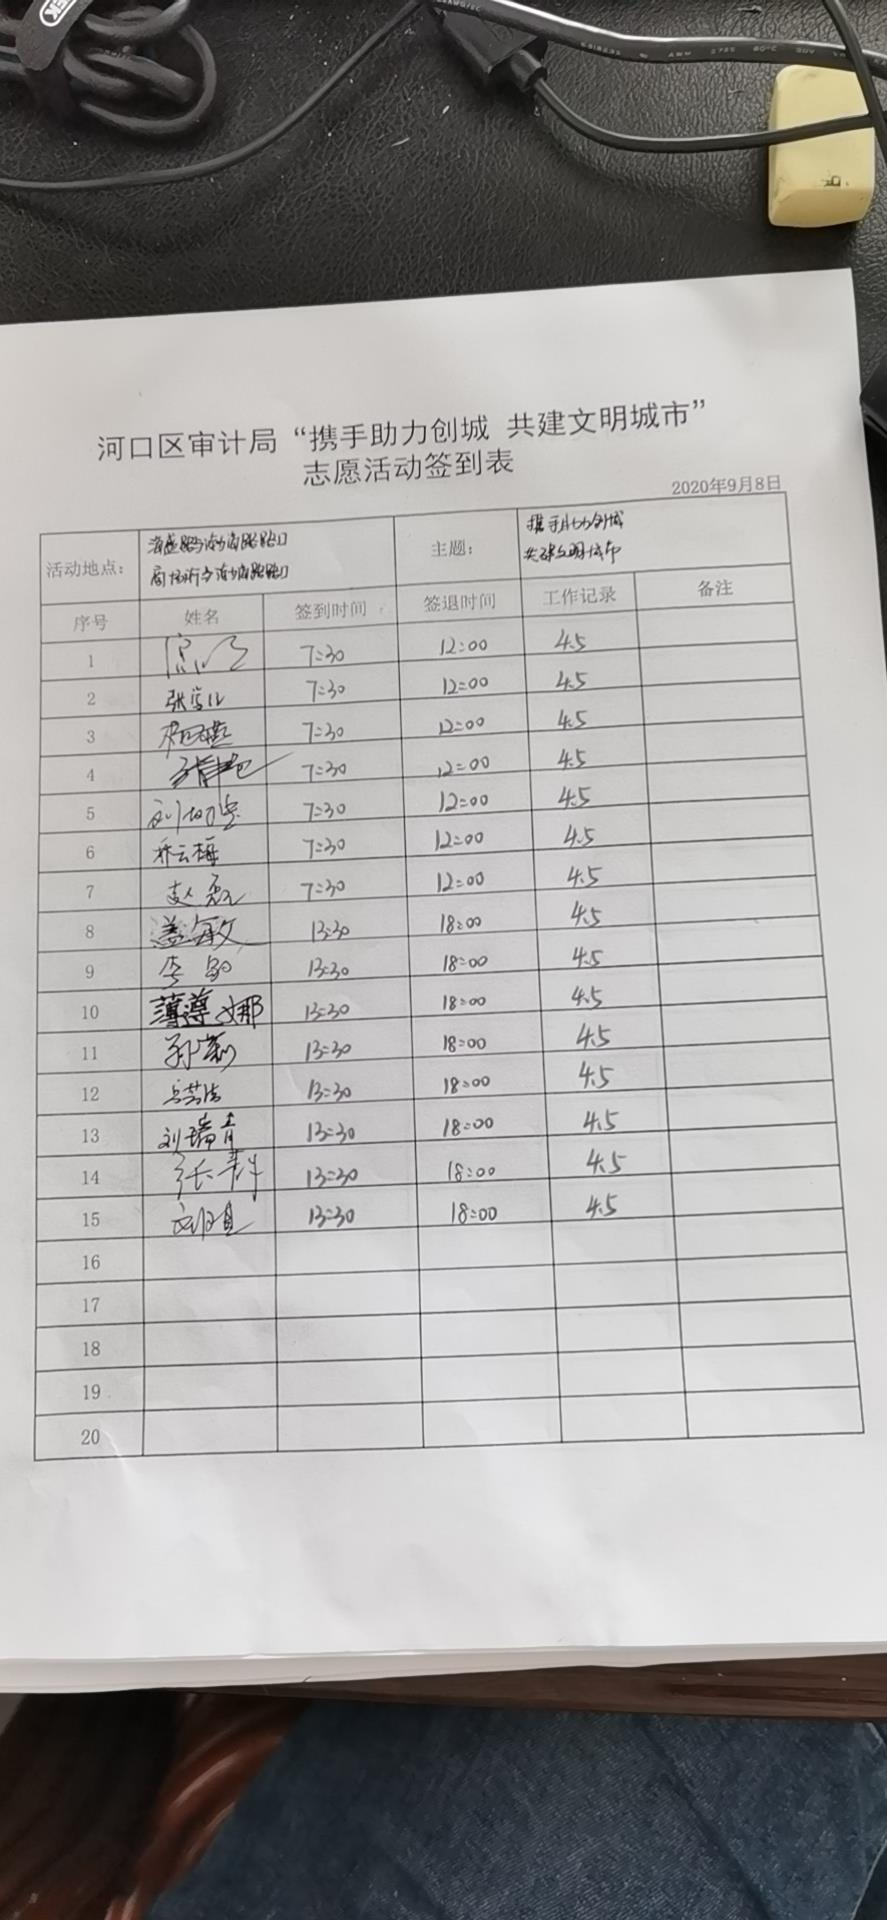 河口区审计局“携手助力创城 共建文明城市”
志愿活动签到表
2020年9月8日
活动地点： 主题： 携手助力创城
共建文明城市
序号 姓名 签到时间 签退时间 工作记录 备注
1 7:30 12:00 4.5
2 7:30 12:00 4.5
3 7:30 12:00 4.5
4 7:30 12:00 4.5
5 7:30 12:00 4.5
6 乔云梅 7:30 12:00 4.5
7 赵 7:30 12:00 4.5
8 盖敏 13:30 18:00 4.5
9 李 13:30 18:00 4.5
10 薄遵娜 13:30 18:00 4.5
11 孙 13:30 18:00 4.5
12 13:30 18:00 4.5
13 刘瑞青 13:30 18:00 4.5
14 张群 13:30 18:00 4.5
15 13:30 18:00 4.5
16
17
18
19
20